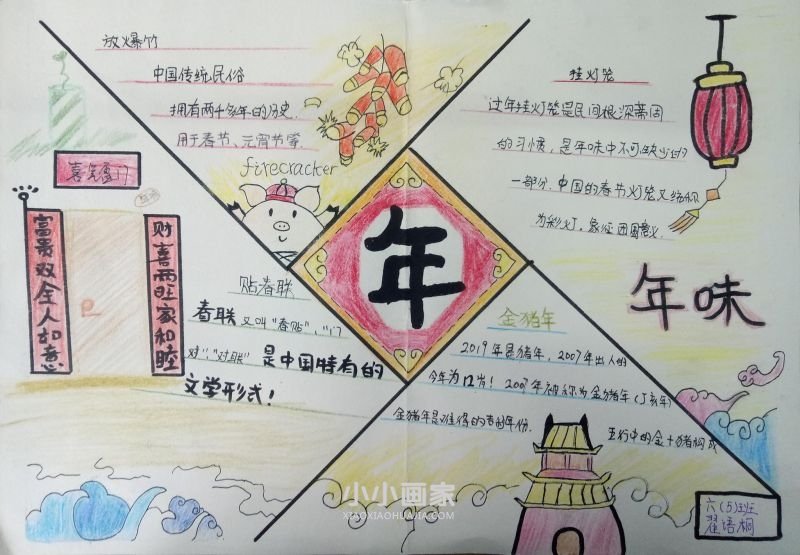 放火爆竹
中国传统民俗
拥有两千多年的历史.
用于春节、元宵节等
firecracker
挂灯笼
过年挂灯笼是民间根深蒂固
的习惯，是年味中不可缺少的
一部分.中国的春节灯笼又统称
为彩灯，象征团圆意义.
喜气盈门
富贵双全人如意
财喜两旺家和睦
年
年味
贴春联
春联又叫“春贴”，“门
对”，“对联”是中国特有的
文学形式！
金猪年
2019年是猪年，2007年出人的
今年为12岁！2007年被称为金猪年(丁亥年)
金猪年是难得的
年份.
五行中的金+猪构成
小小画家
XIAOXIAOHUAJIA.COM
六(5)班
翟语桐